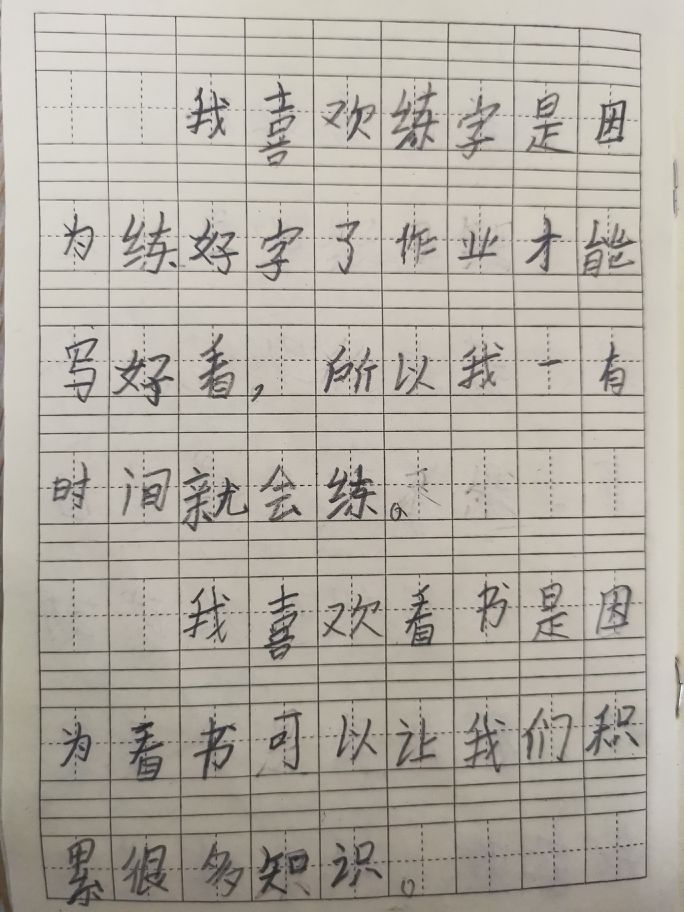 我喜欢练字是因
为练好字了作业才能
写好看，所以我一有
时间就会练。
我喜欢看书是因
为看书可以让我们积
累很多知识。